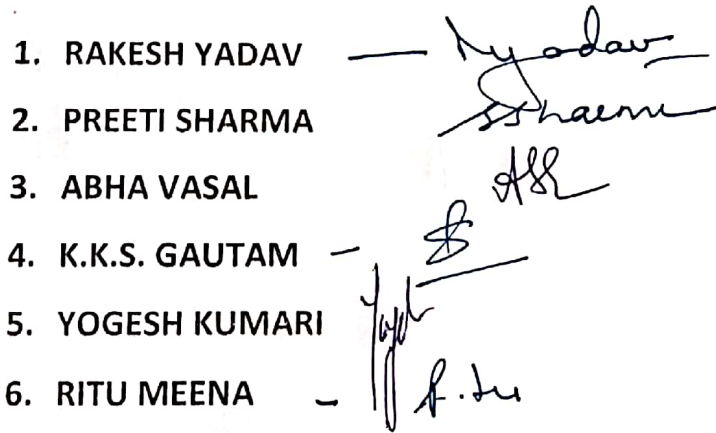 1. RAKESH YADAV — yadav
2. PREETI SHARMA
3. ABHA VASAL
4. K.K.S. GAUTAM –
5. YOGESH KUMARI
6. RITU MEENA –